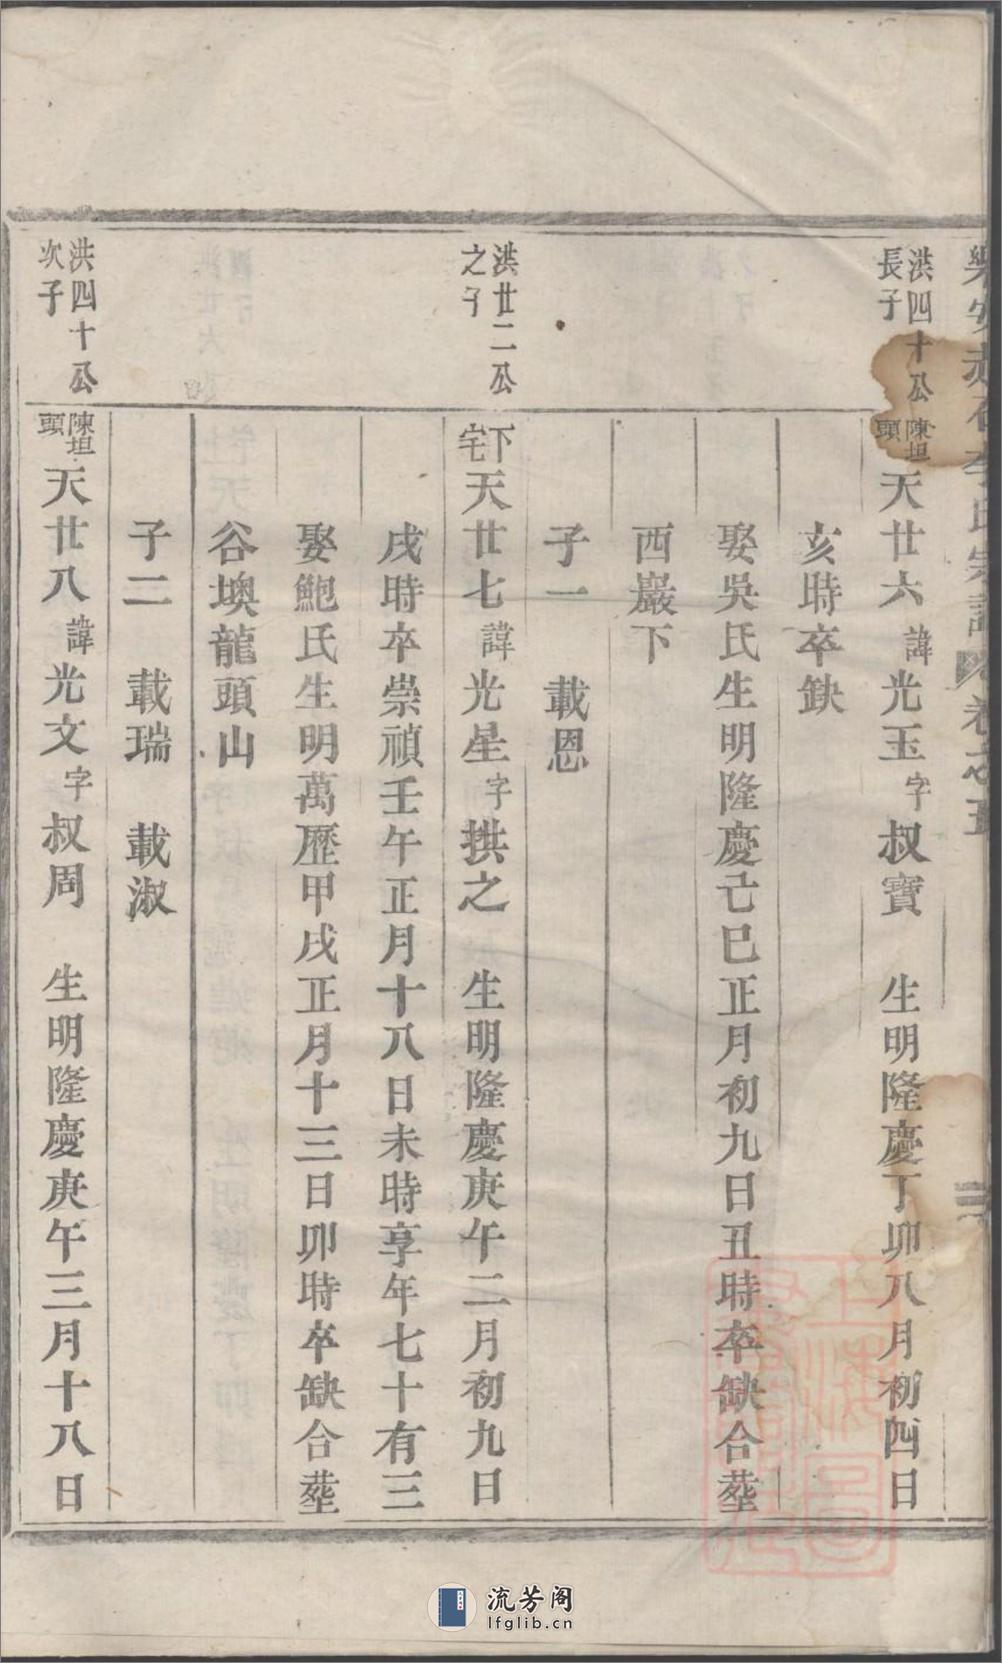 洪四十公
長子
陳坦
頭
天廿六諱光玉字叔寶　生明隆慶丁卯八月初四日
亥時卒缺
娶吳氏生明隆慶己巳正月初九日丑時卒缺合塟
西巖下
子一　載恩
洪廿二公
之子
下
宅
天廿七諱光星字拱之　生明隆慶庚午二月初九日
戌時卒崇禎壬午正月十八日未時享年七十有三
娶鮑氏生明萬歷甲戌正月十三日卯時卒缺合塟
谷墺龍頭山
子二　載瑞　載淑
洪四十公
次子
陳坦
頭
天廿八諱光文字叔周　生明隆慶庚午三月十八日
流芳阁
lfglib.cn